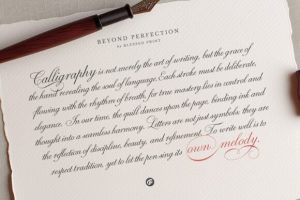 BEYOND PERFECTION
by BLESSED PRINT
Calligraphy is not merely the art of writing, but the grace of
the hand revealing the soul of language. Each stroke must be deliberate,
flowing with the rhythm of breath, for true mastery lies in control and
elegance. In our time, the quill dances upon the page, binding ink and
thought into a seamless harmony. Letters are not just symbols; they are
the reflection of discipline, beauty, and refinement. To write well is to
respect tradition, yet to let the pen sing its own melody.